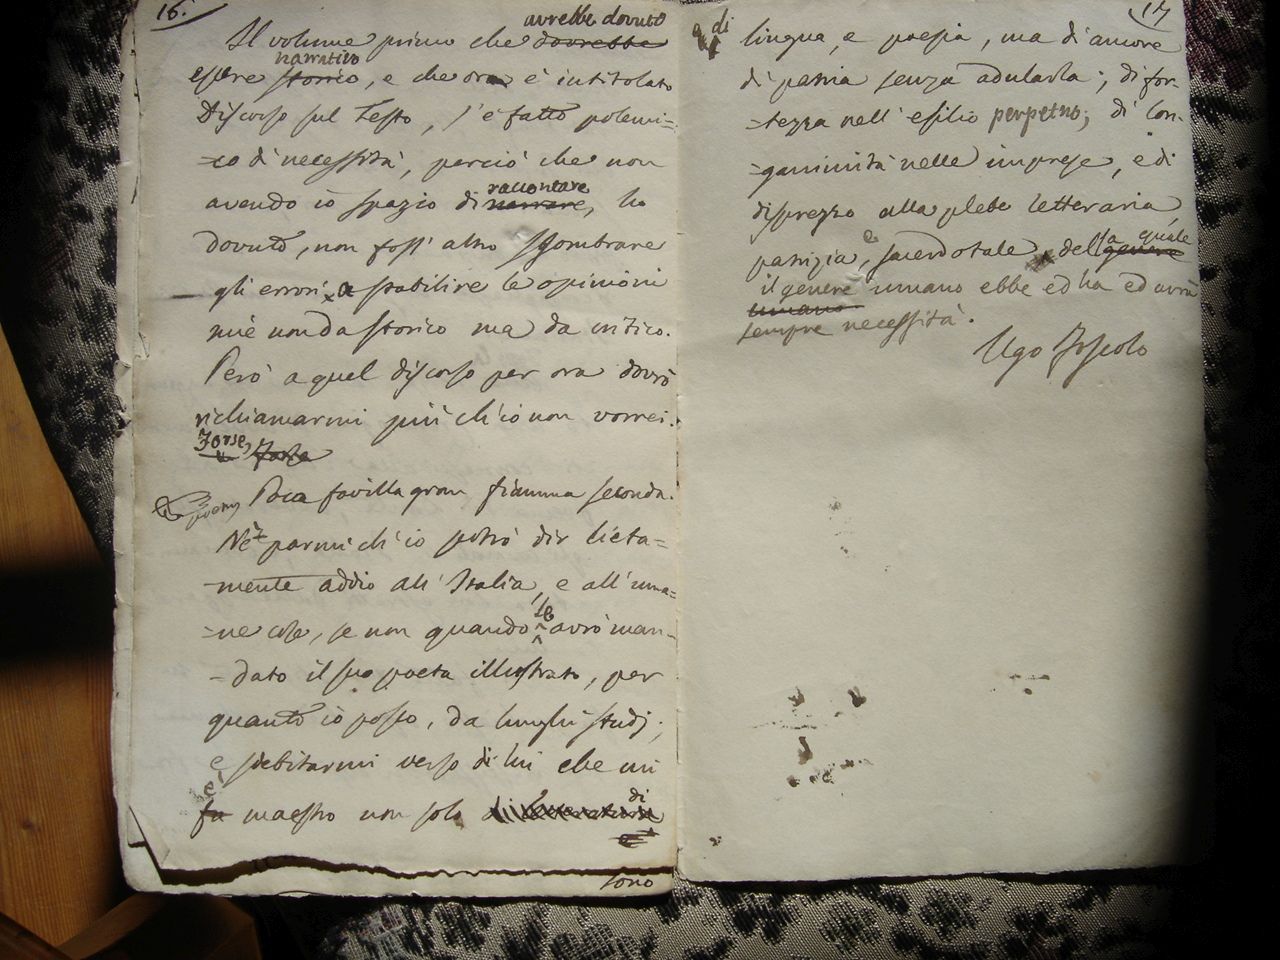 16.
avrebbe dovuto
Il volume primo che dovrebbe
narrativo
essere storico, e che ora è intitolato
Discorso sul Testo, s'è fatto polemi=
=co di necessità, perciò che non
raccontare
avendo io spazio di narrare, ho
dovuto, non foss' altro sgombrare
gli errori, a stabilire le opinioni
mie non da storico ma da critico.
Però a quel discorso per ora dovrò
richiamarmi più ch'io non vorrei.
Forse, Forse
Poca favilla gran fiamma seconda.
Nè parmi ch'io potrò dir lieta=
=mente addio all' Italia, e all' uma=
le
=ne cose, se non quando avrò man=
=dato il suo poeta illustrato, per
quanto io posso, da lunghi studj;
e sdebitarmi verso di lui che mi
è
fu maestro non solo di letteratura
di
sono
17
di
lingua, e poesia, ma d'amore
di patria senza adularla; di for=
=tezza nell' esilio perpetuo; di lon=
=ganimità nelle imprese, e di
disprezzo alla plebe letteraria,
patrizia, e sacerdotale, della quale
genere
il genere umano ebbe ed ha ed avrà
umano
sempre necessità.
Ugo Foscolo